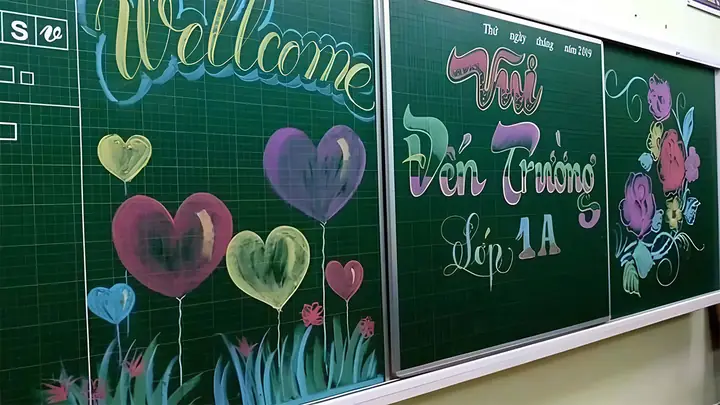 S v
Wellcome
Thứ ngày tháng năm 2019
Vui
Đến Trường
Lớp 1A